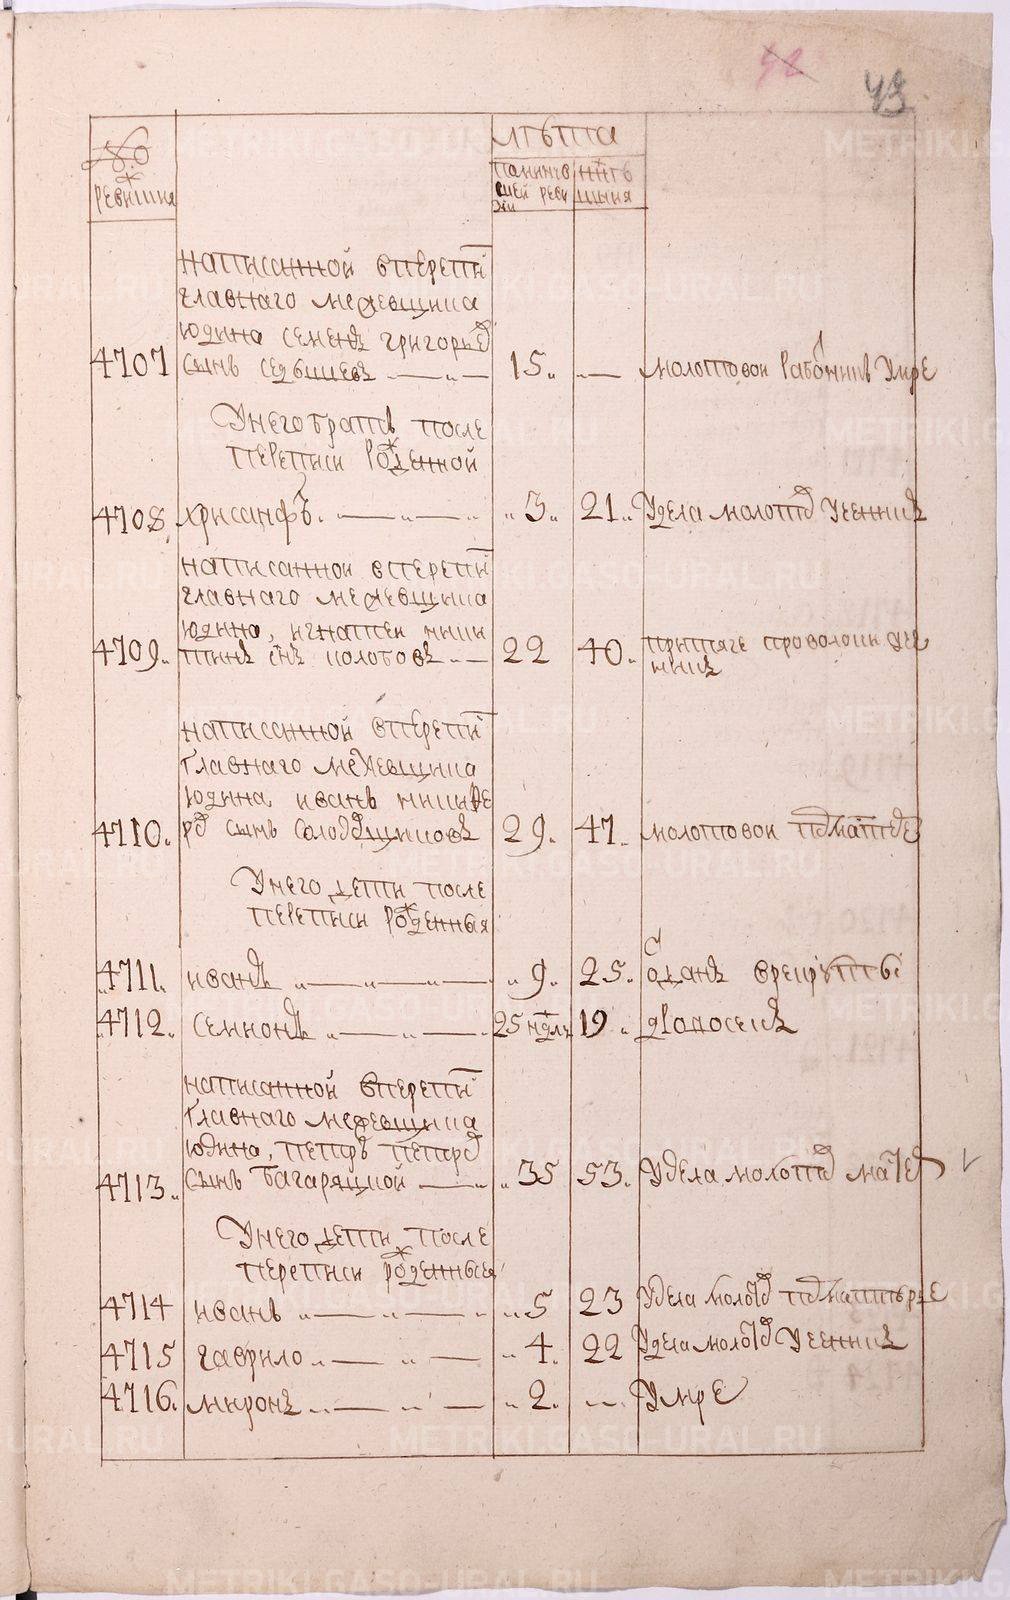 42
43
№
ревишня
лѣта
понинѣ
шей реви
зіи
нинѣ
шыня
написанной вперепи
главнаго межевщика
юдина семенъ григорьев
4707 сынъ 15 молотовои работникъ умре
у него братъ после
переписи рожденной
4708 хрисанфъ 3 21 у дела молотов ученикъ
написаннои вперепи
главнаго межевщика
юдина, игнатеи ники
4709 тинъ снъ колотовъ 22 40 притяге проволоки уче
никъ
написанной вперепи
главнаго межевщика
юдина иванъ никифо
4710 ров сынъ солодовщиковъ 29 47 молотовои подмастерье
у него дети после
переписи рожденныя
4711 иванъ 9 25 отданъ врекруты
4712 семионъ 25 недль 19 дровосекъ
написанной вперепи
главнаго межевщика
юдина, петръ петров
4713 сынъ багаряцкой 35 53 у дела молотов мастер
у него дети после
переписи рожденныя
4714 иванъ 5 23 у дела молотов подмастерье
4715 гаврило 4 22 у дела молотов ученикъ
4716 миронъ 2 умре
METRIKI.GASO-URAL.RU